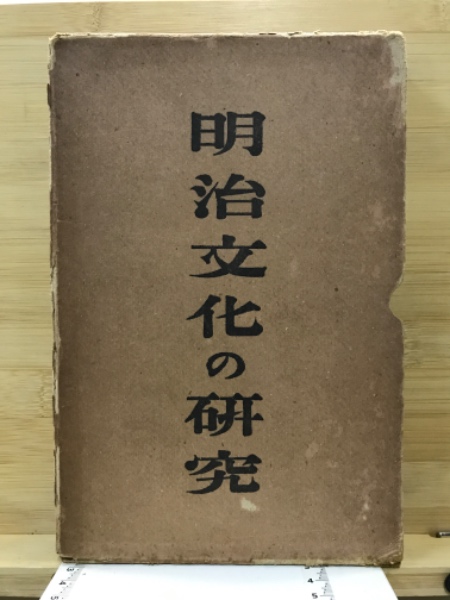 明治文化の研究